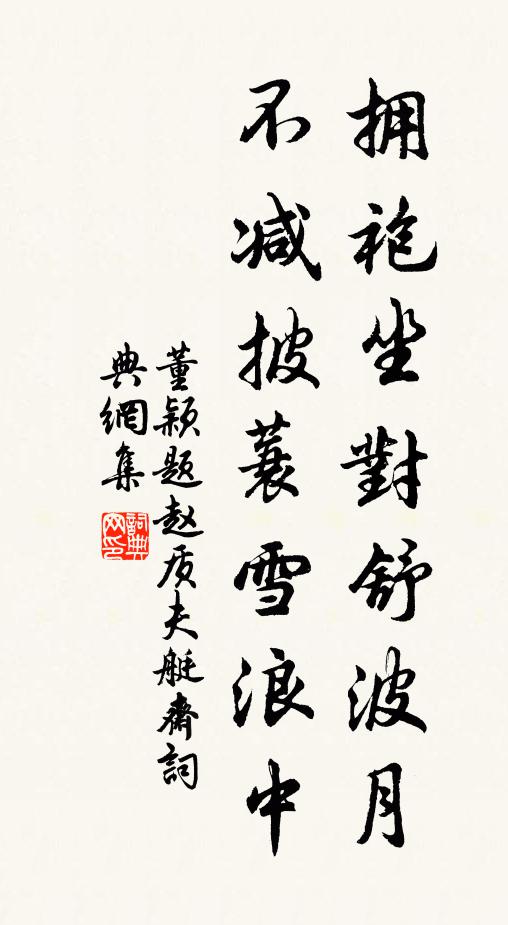 拥袍坐對舒波月
不减披蓑雪浪中
董颖题赵质夫艇齋詞
典網集
詞典网印